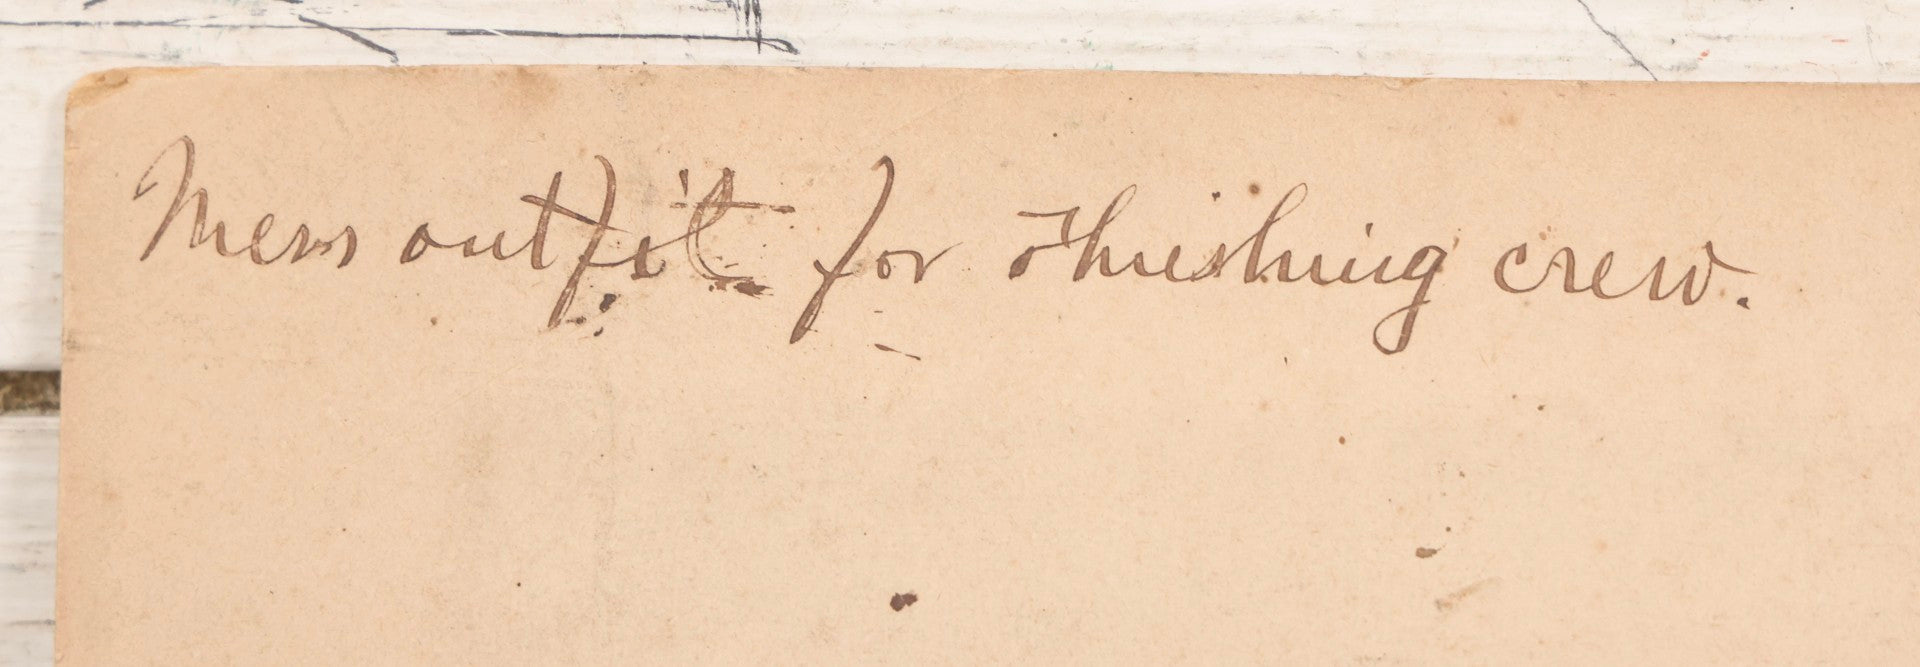 Mess outfit for thrishing crew.